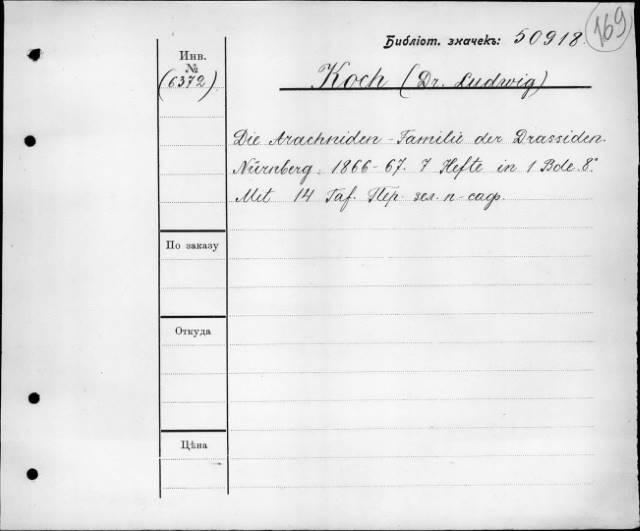 169
Библіот. значекъ: 50918.
Инв.
№
(6372)
Koch (Dr. Ludwig)
Die Arachniden-Familie der Drassiden.
Nürnberg. 1866-67. 7 Hefte in 1 Bde. 8°
Met 14 Taf. Пер. зел. п-саф.
По заказу
Откуда
Цѣна